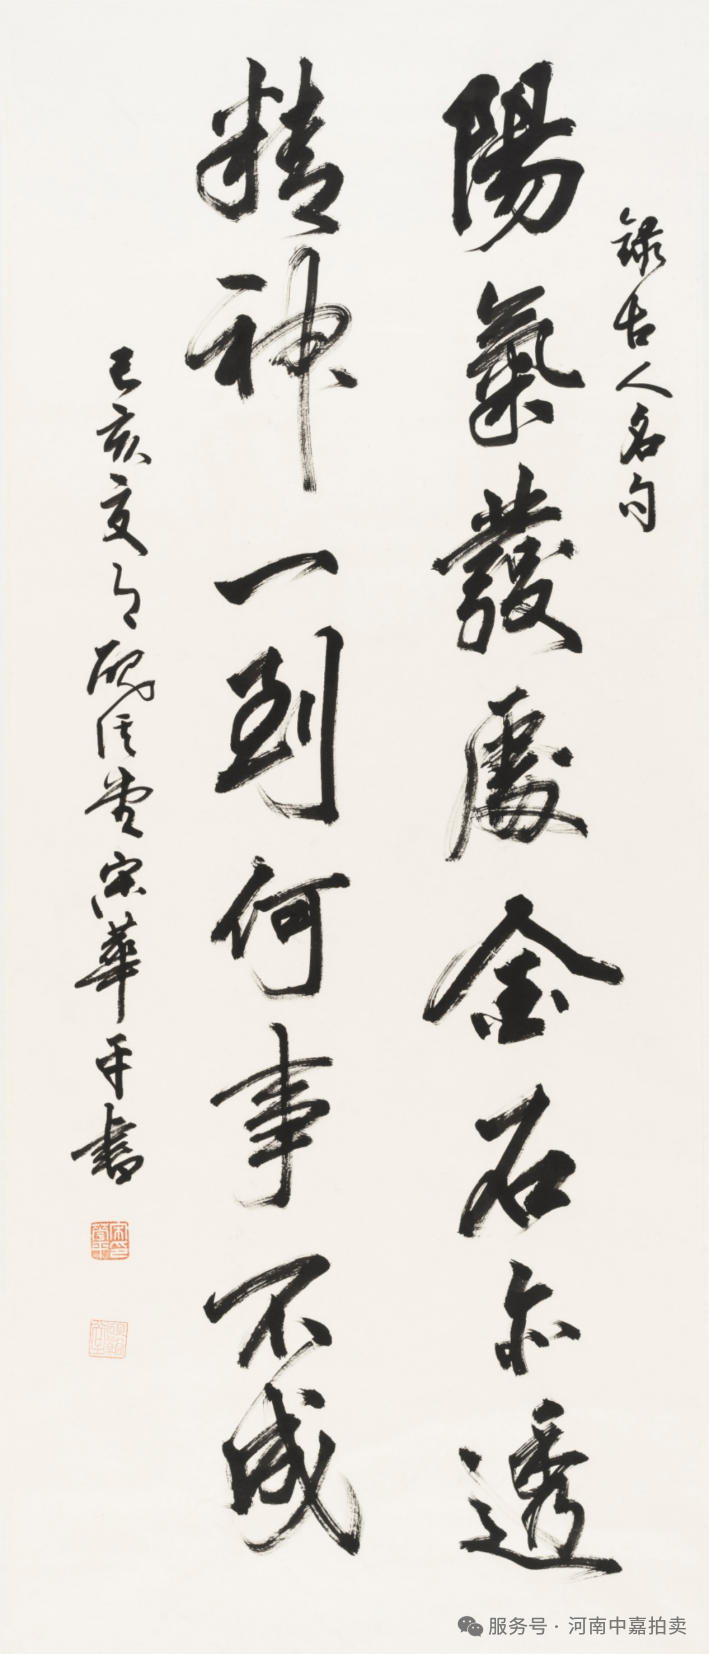 錄古人名句
陽氣發處金石亦透
精神一到何事不成
己亥夏日硯堂宋華平書
服务号·河南中嘉拍卖